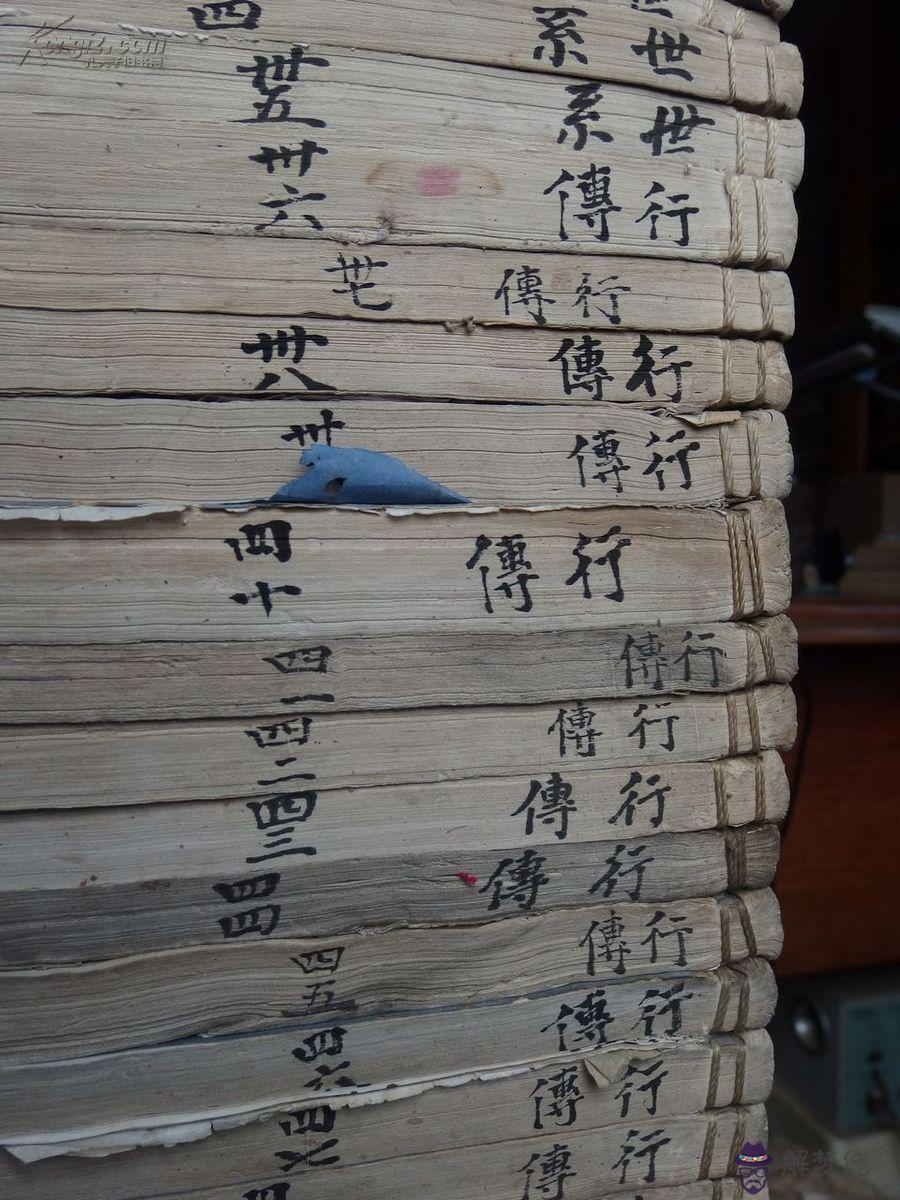 Kongfz.com
孔夫子旧书网
世系 四
世系 卅五
行傳 卅六
行傳 卅七
行傳 卅八
行傳 卅
行傳 四十
行傳 四一
行傳 四二
行傳 四三
行傳 四四
行傳 四五
行傳 四六
行傳 四七
行傳 四
解梦佬